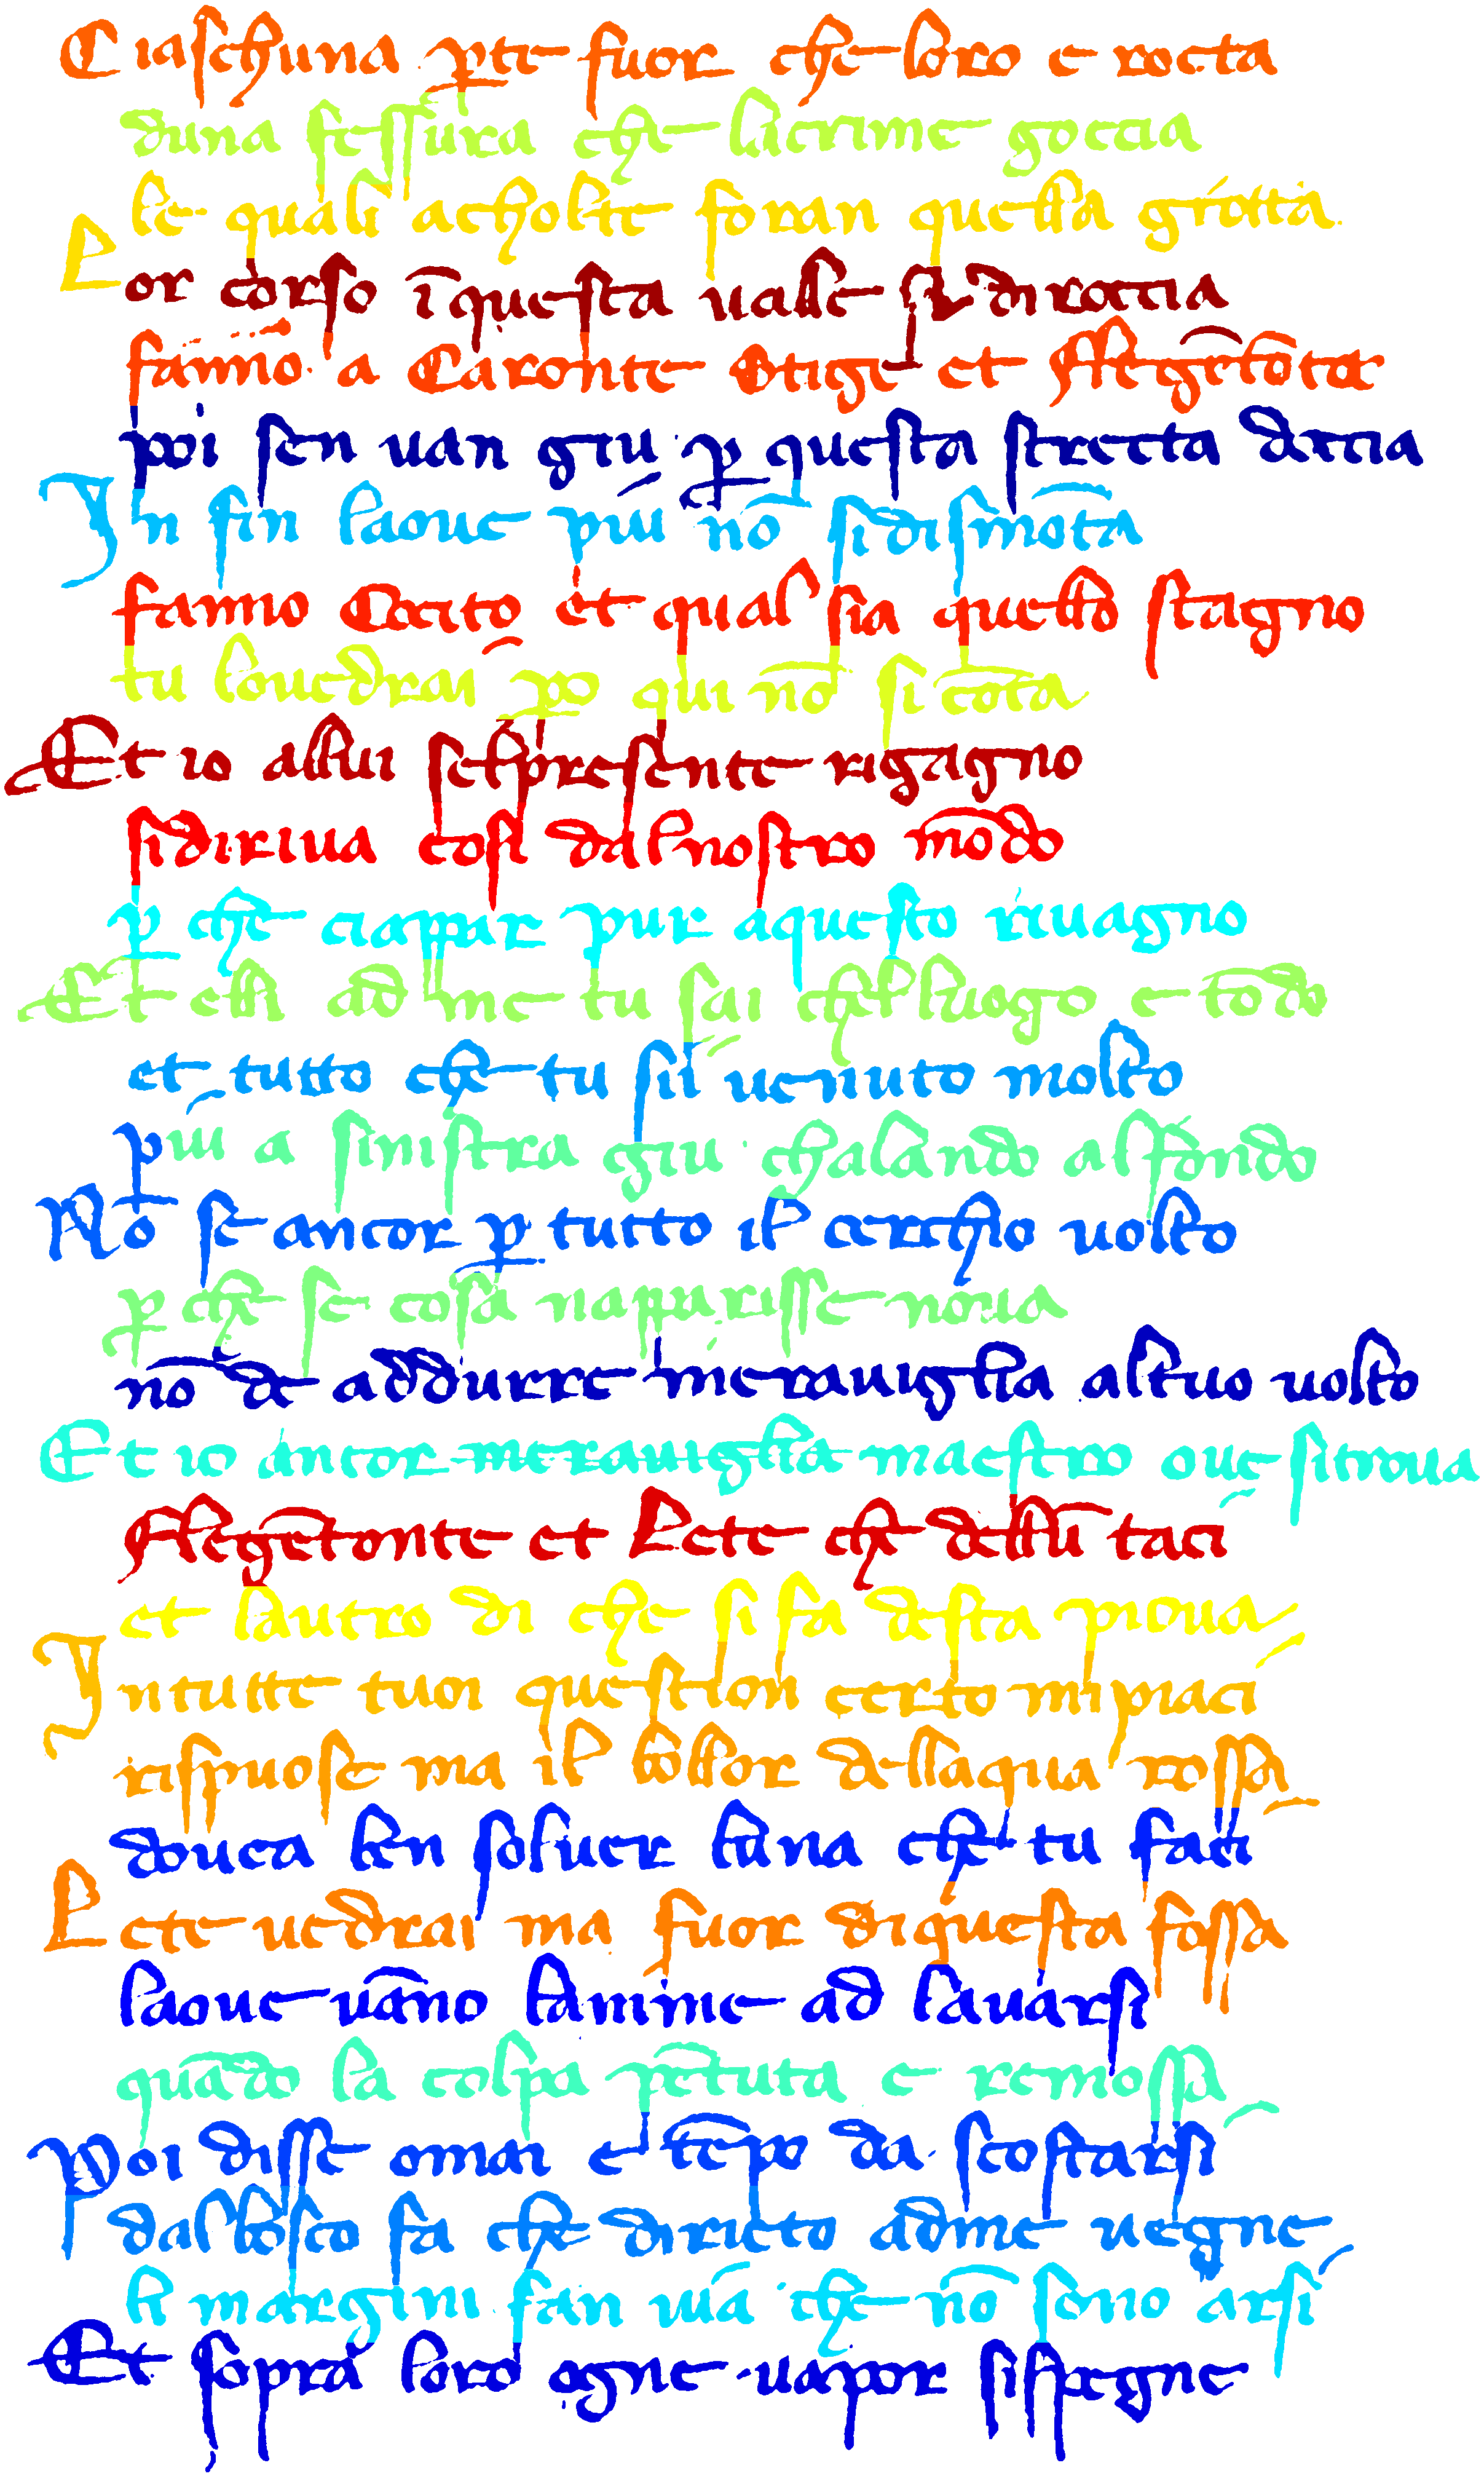 Ciaschuna ꝑte fuor che loro e rocta
duna fessura che lacrime goccia
le quali acholte foran quella grotta
Lor corso ī questa ualle si diroccia
fanno a Caronte Stige et flegetōta
poi sen uan giu ꝑ questa strecta doccia
In fin laoue piu nō si dismōta
fanno Cocito et qual sia quello stagno
tu louedrai ꝑo qui nō si cōta
Et io allui sel presente rigagno
si diriua cosi dal nostro mōdo
ꝑ che ciappar pur aquesto riuagno
Et elli ad me tu sai chel luogo e tōdo
et tutto che tu sii uenuto molto
piu a sinistra giu chalando al fondo
Nō se ancor ꝑ tutto il cerchio uolto
ꝑ che se cosa napparisse noua
nō de addurre merauiglia al tuo uolto
Et io ancor merauiglia maestro oue si troua
flegētonte et Lete che dellū taci
et laltro di che si fa desta pioua
In tutte tuoi question certo mi piaci
rispuose ma il bollor dellaqua rossa
douea ben soluer luna che tu faci
Lete uedrai ma fuor di questa fossa
laoue uāno lanime ad lauarsi
quādo la colpa pētuta e remossa
Poi disse omai e tēpo da scostarsi
dal bosco fa che directo adme uegne
li margini fan uia che nō sono arsi
Et sopra loro ogne uapor si spegne